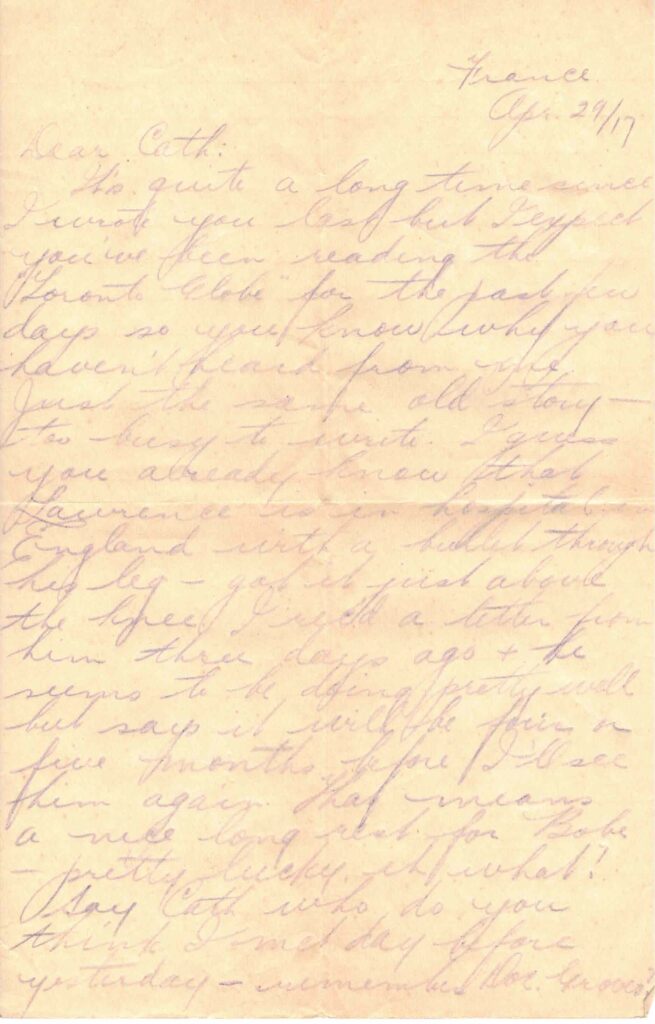 France
Apr. 29/17
Dear Cath:
It's quite a long time since
I wrote you last but I expect
you've been reading the
"Toronto Globe" for the past few
days so you know why you
haven't heard from me.
Just the same old story —
too busy to write. I guess
you already know that
Lawrence is in hospital in
England with a bullet through
his leg — got it just above
the knee. I rec'd a letter from
him three days ago + he
seems to be doing pretty well
but says it will be four or
five months before I'll see
him again. That means
a nice long rest for
— pretty lucky, eh what!
Say Cath who do you
think I met day before
yesterday — remember Doc.